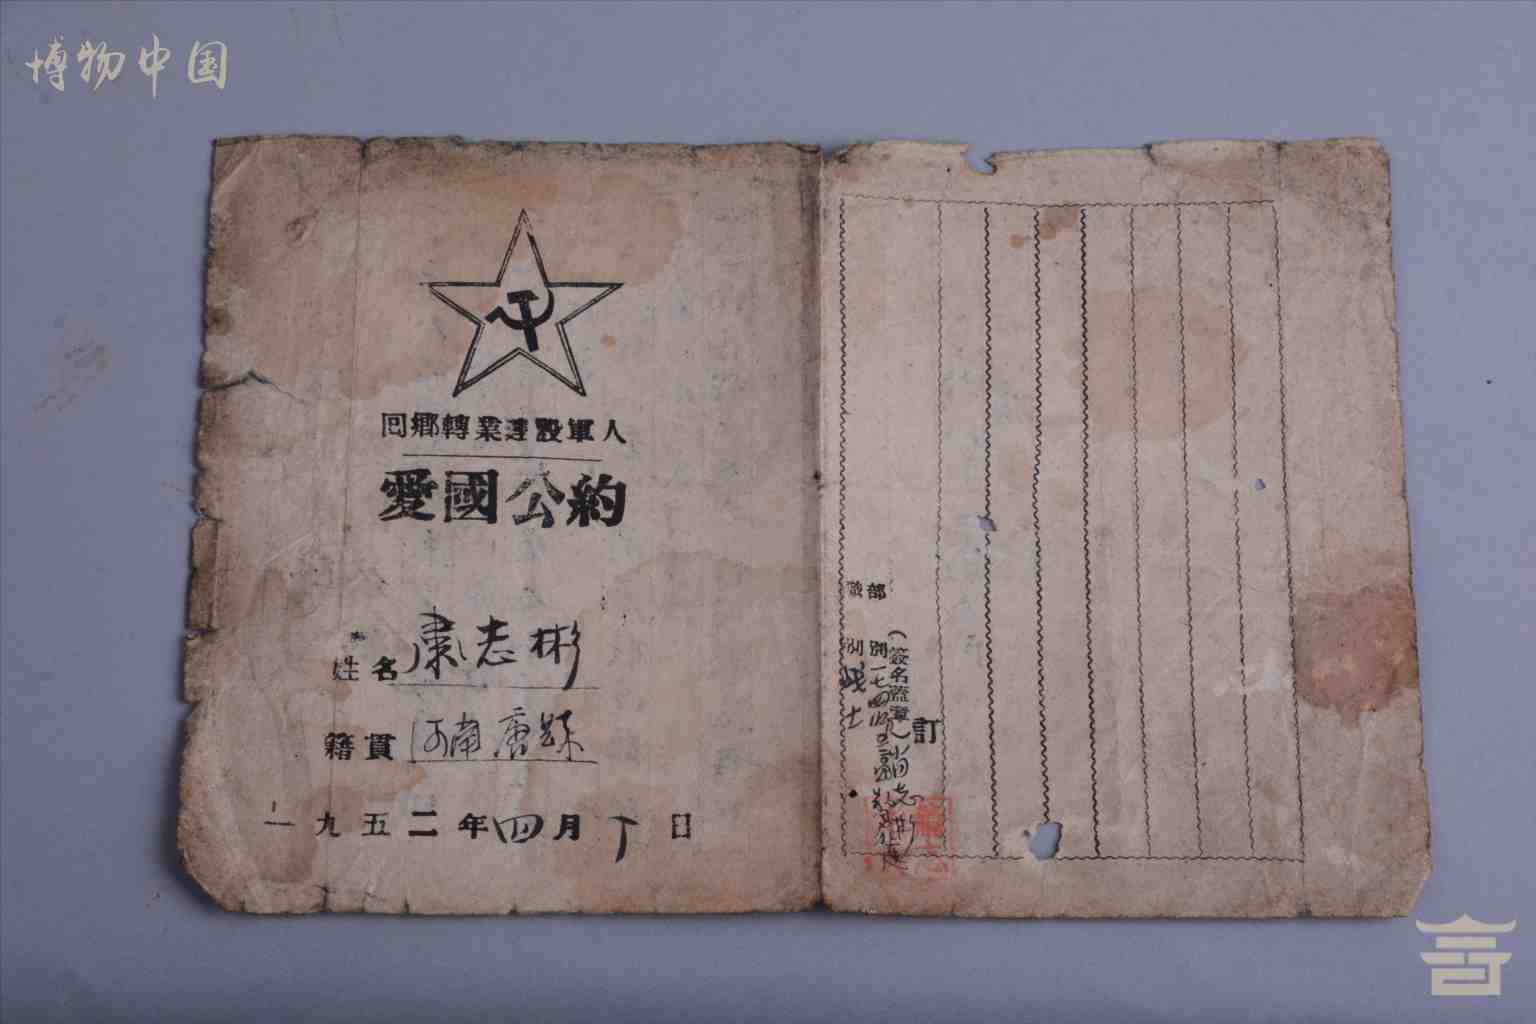 博物中国
回鄉轉業建設軍人
愛國公約
姓名 肅志彬
籍貫 河南唐縣
一九五二年四月 日
訂
(簽名蓋章)肖志彬
部別
職別 战士